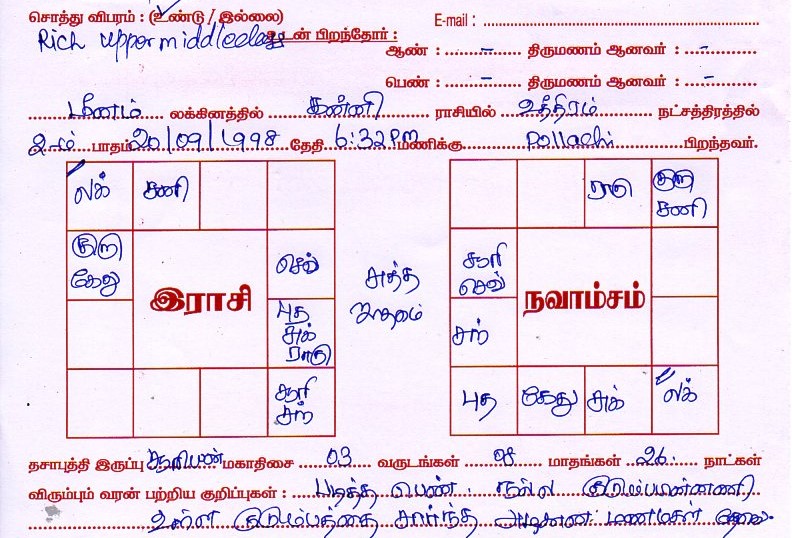 சொத்து விபரம் : (உண்டு / இல்லை) E-mail :
Rich uppermiddleclass உடன் பிறந்தோர் :
ஆண் : - திருமணம் ஆனவர் : -
பெண் : - திருமணம் ஆனவர் : -
மீனம் லக்கினத்தில் கன்னி ராசியில் உத்திரம் நட்சத்திரத்தில்
2-ம் பாதம் 20/09/1998 தேதி 6:32 PM மணிக்கு Pollachi பிறந்தவர்.
லக் சனி
குரு கேது
செவ்
புத சுக் ராகு
சூரி சந்
இராசி
ராகு குரு சனி
சூரி செவ்
சந்
புத கேது சுக் லக்
நவாம்சம்
தசாபுத்தி இருப்பு சூரியன் மகாதிசை 03 வருடங்கள் 08 மாதங்கள் 26 நாட்கள்
விரும்பும் வரன் பற்றிய குறிப்புகள் : படித்த பெண். நல்ல குடும்ப
உள்ள குடும்பத்தை சார்ந்த அழகான மணமகள் தேவை.